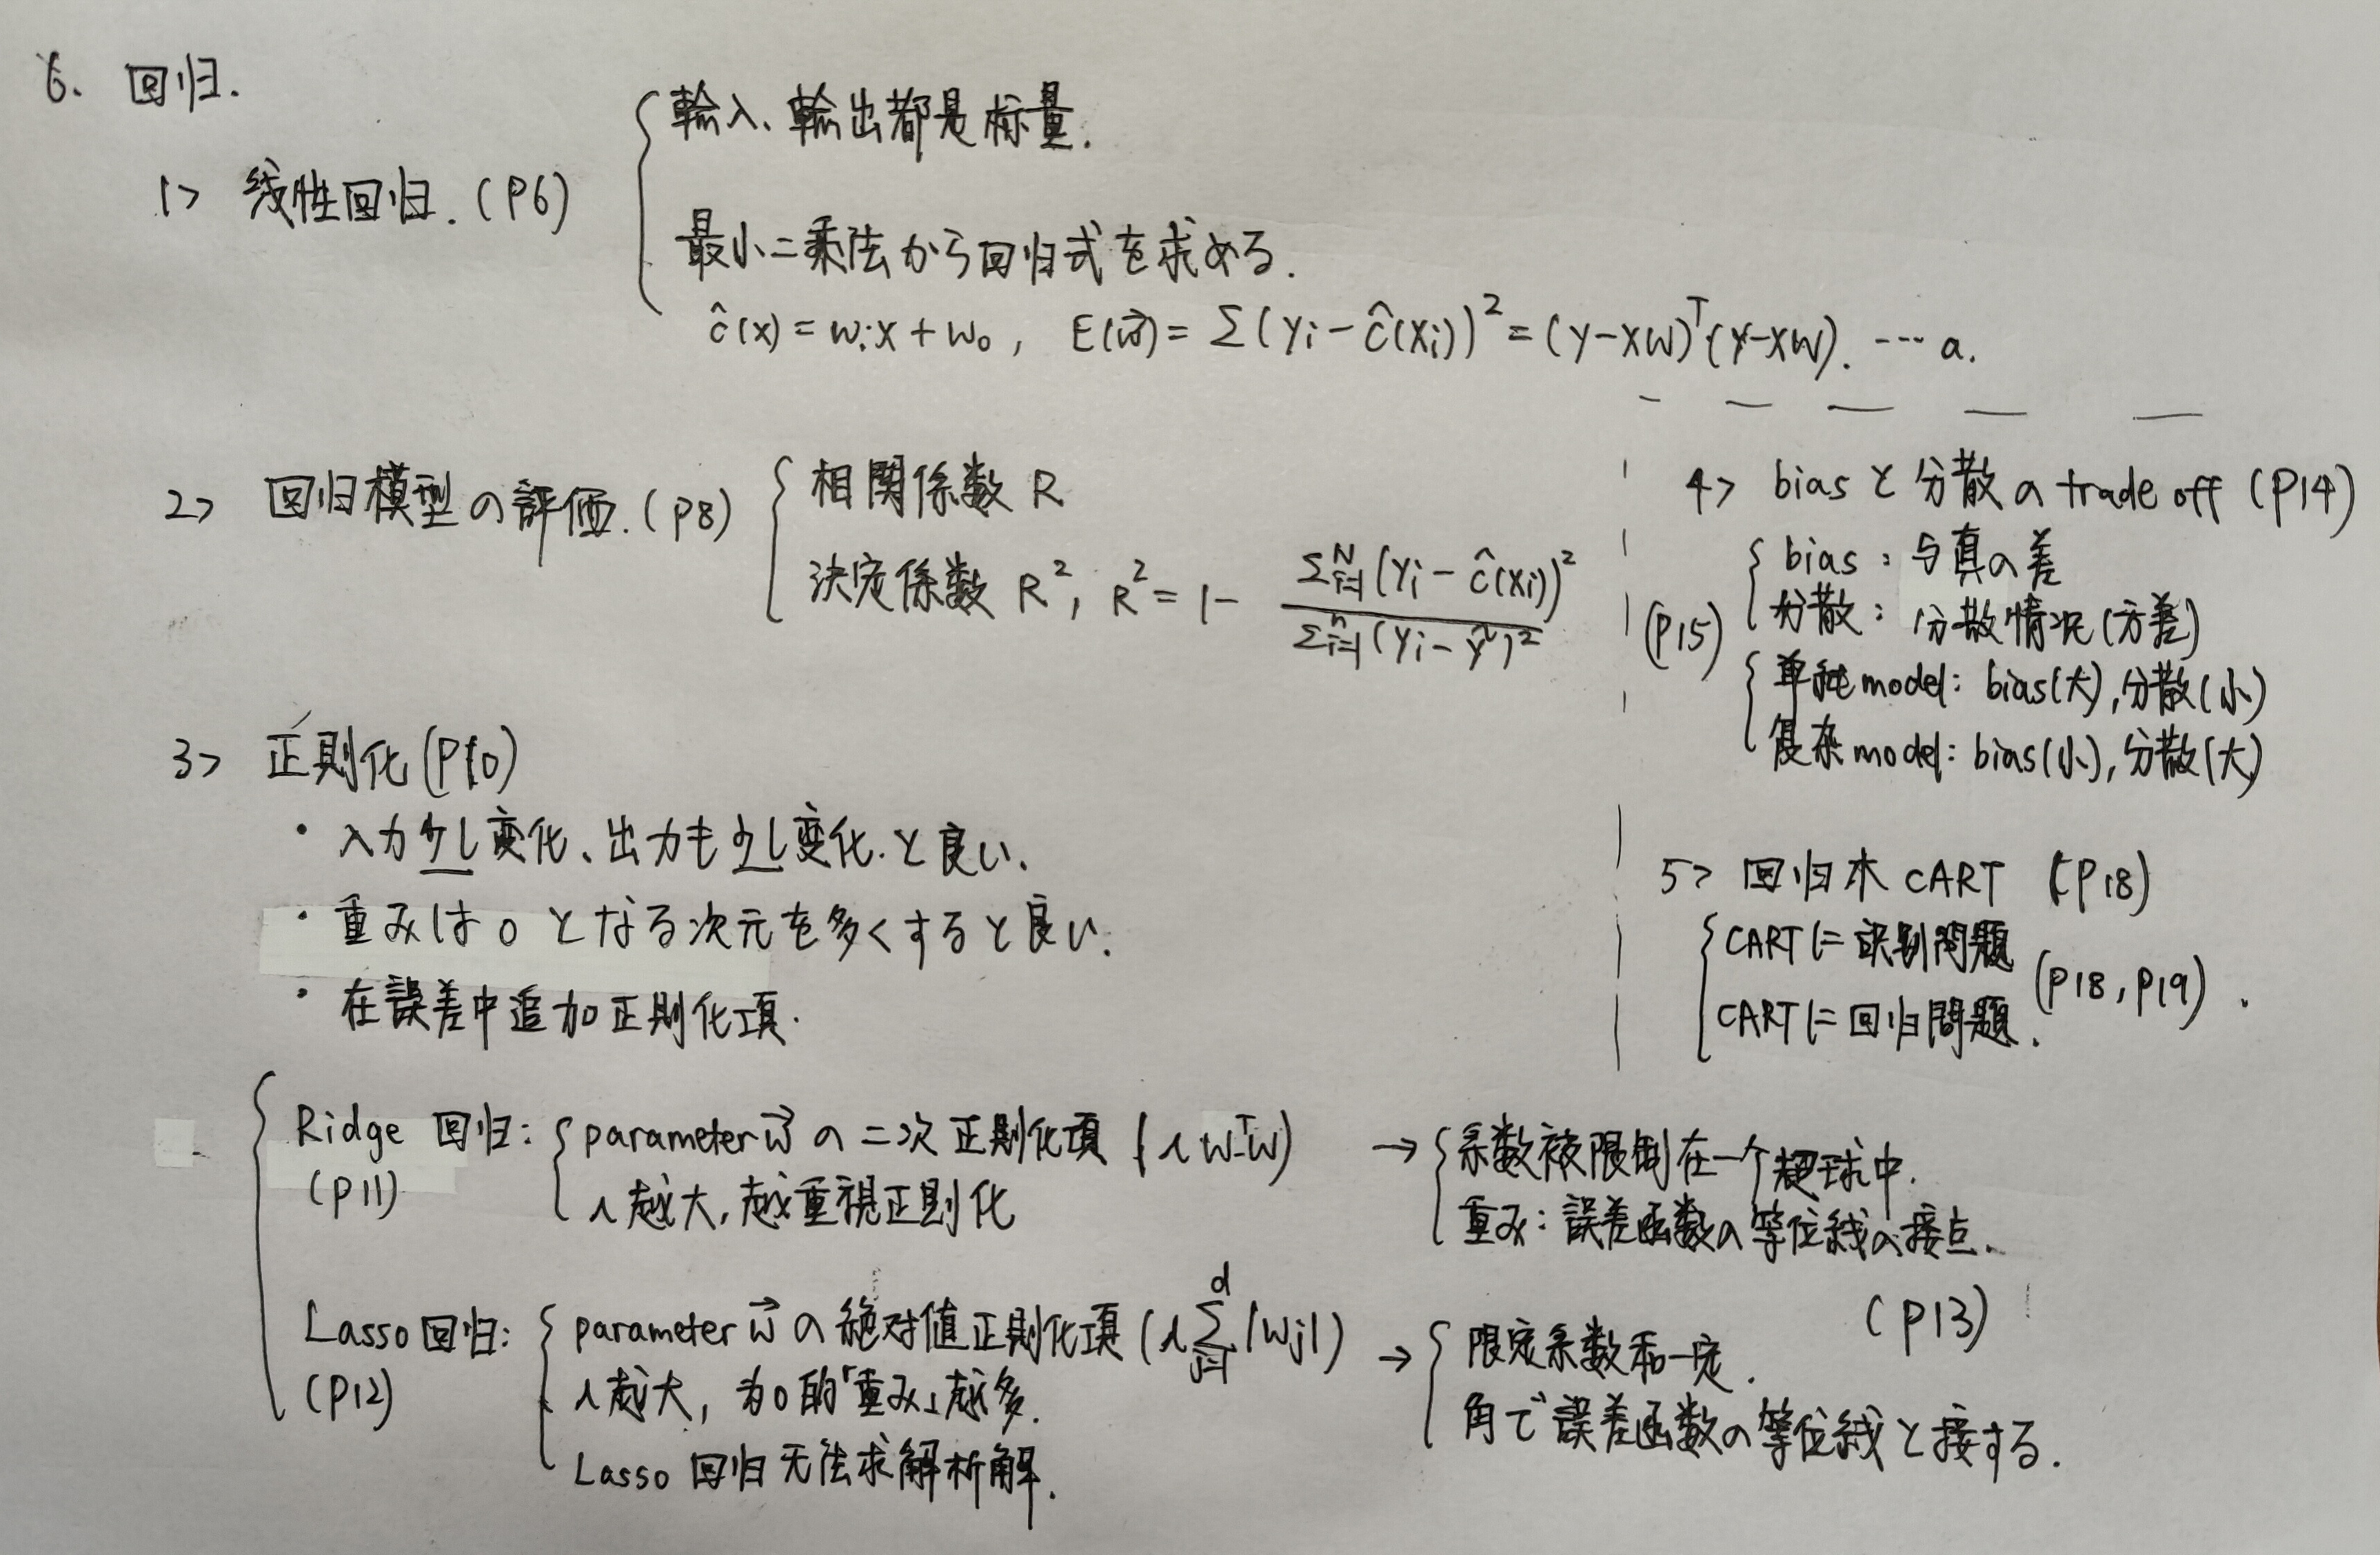 6. 回归.
1> 线性回归. (P6)
輸入、輸出都是标量.
最小二乘法から回归式を求める.
ĉ(x) = wᵢx + w₀, E(w⃗) = Σ(yᵢ - ĉ(xᵢ))² = (y-Xw)ᵀ(y-Xw). … a.
2> 回归模型の評価. (P8)
相関係数 R
決定係数 R², R² = 1 - Σᵢ₌₁ᴺ(yᵢ - ĉ(xᵢ))² / Σᵢ₌₁ⁿ(yᵢ - ỹ)²
3> 正則化 (P10)
・入力少し変化、出力も少し変化.と良い.
・重みは0となる次元を多くすると良い.
・在誤差中追加正則化項.
Ridge 回归: (P11)
parameter w⃗ の二次正則化項 (λwᵀw)
λ越大, 越重視正則化
→ 系数被限制在一个超球中.
重み: 誤差函数の等位线の接点.
Lasso回归: (P12)
parameter w⃗ の絶対値正則化項 (λ Σⱼ₌₁ᵈ |wj|)
λ越大, 为0的「重み」越多.
Lasso 回归无法求解析解.
→ 限定系数和一定.
角で誤差函数の等位线と接する.
(P13)
4> bias と分散の trade off (P14)
bias: 与真の差
分散: 分散情况(方差)
(P15)
单純model: bias(大), 分散(小)
复杂model: bias(小), 分散(大)
5> 回归木 CART (P18)
CARTに識别問題
CARTに回归問題.
(P18, P19).